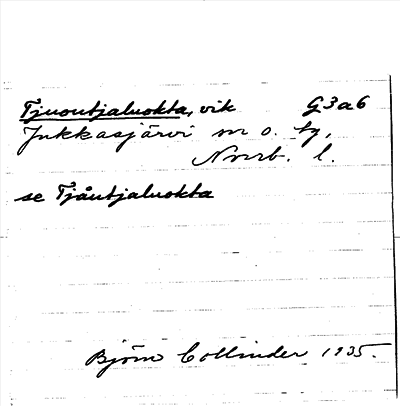 Tjuoutjaluokta, vik G3a6
Jukkasjärvi sn o. tg,
Norrb. l.
se Tjåutjaluokta
Björn Collinder 1935.